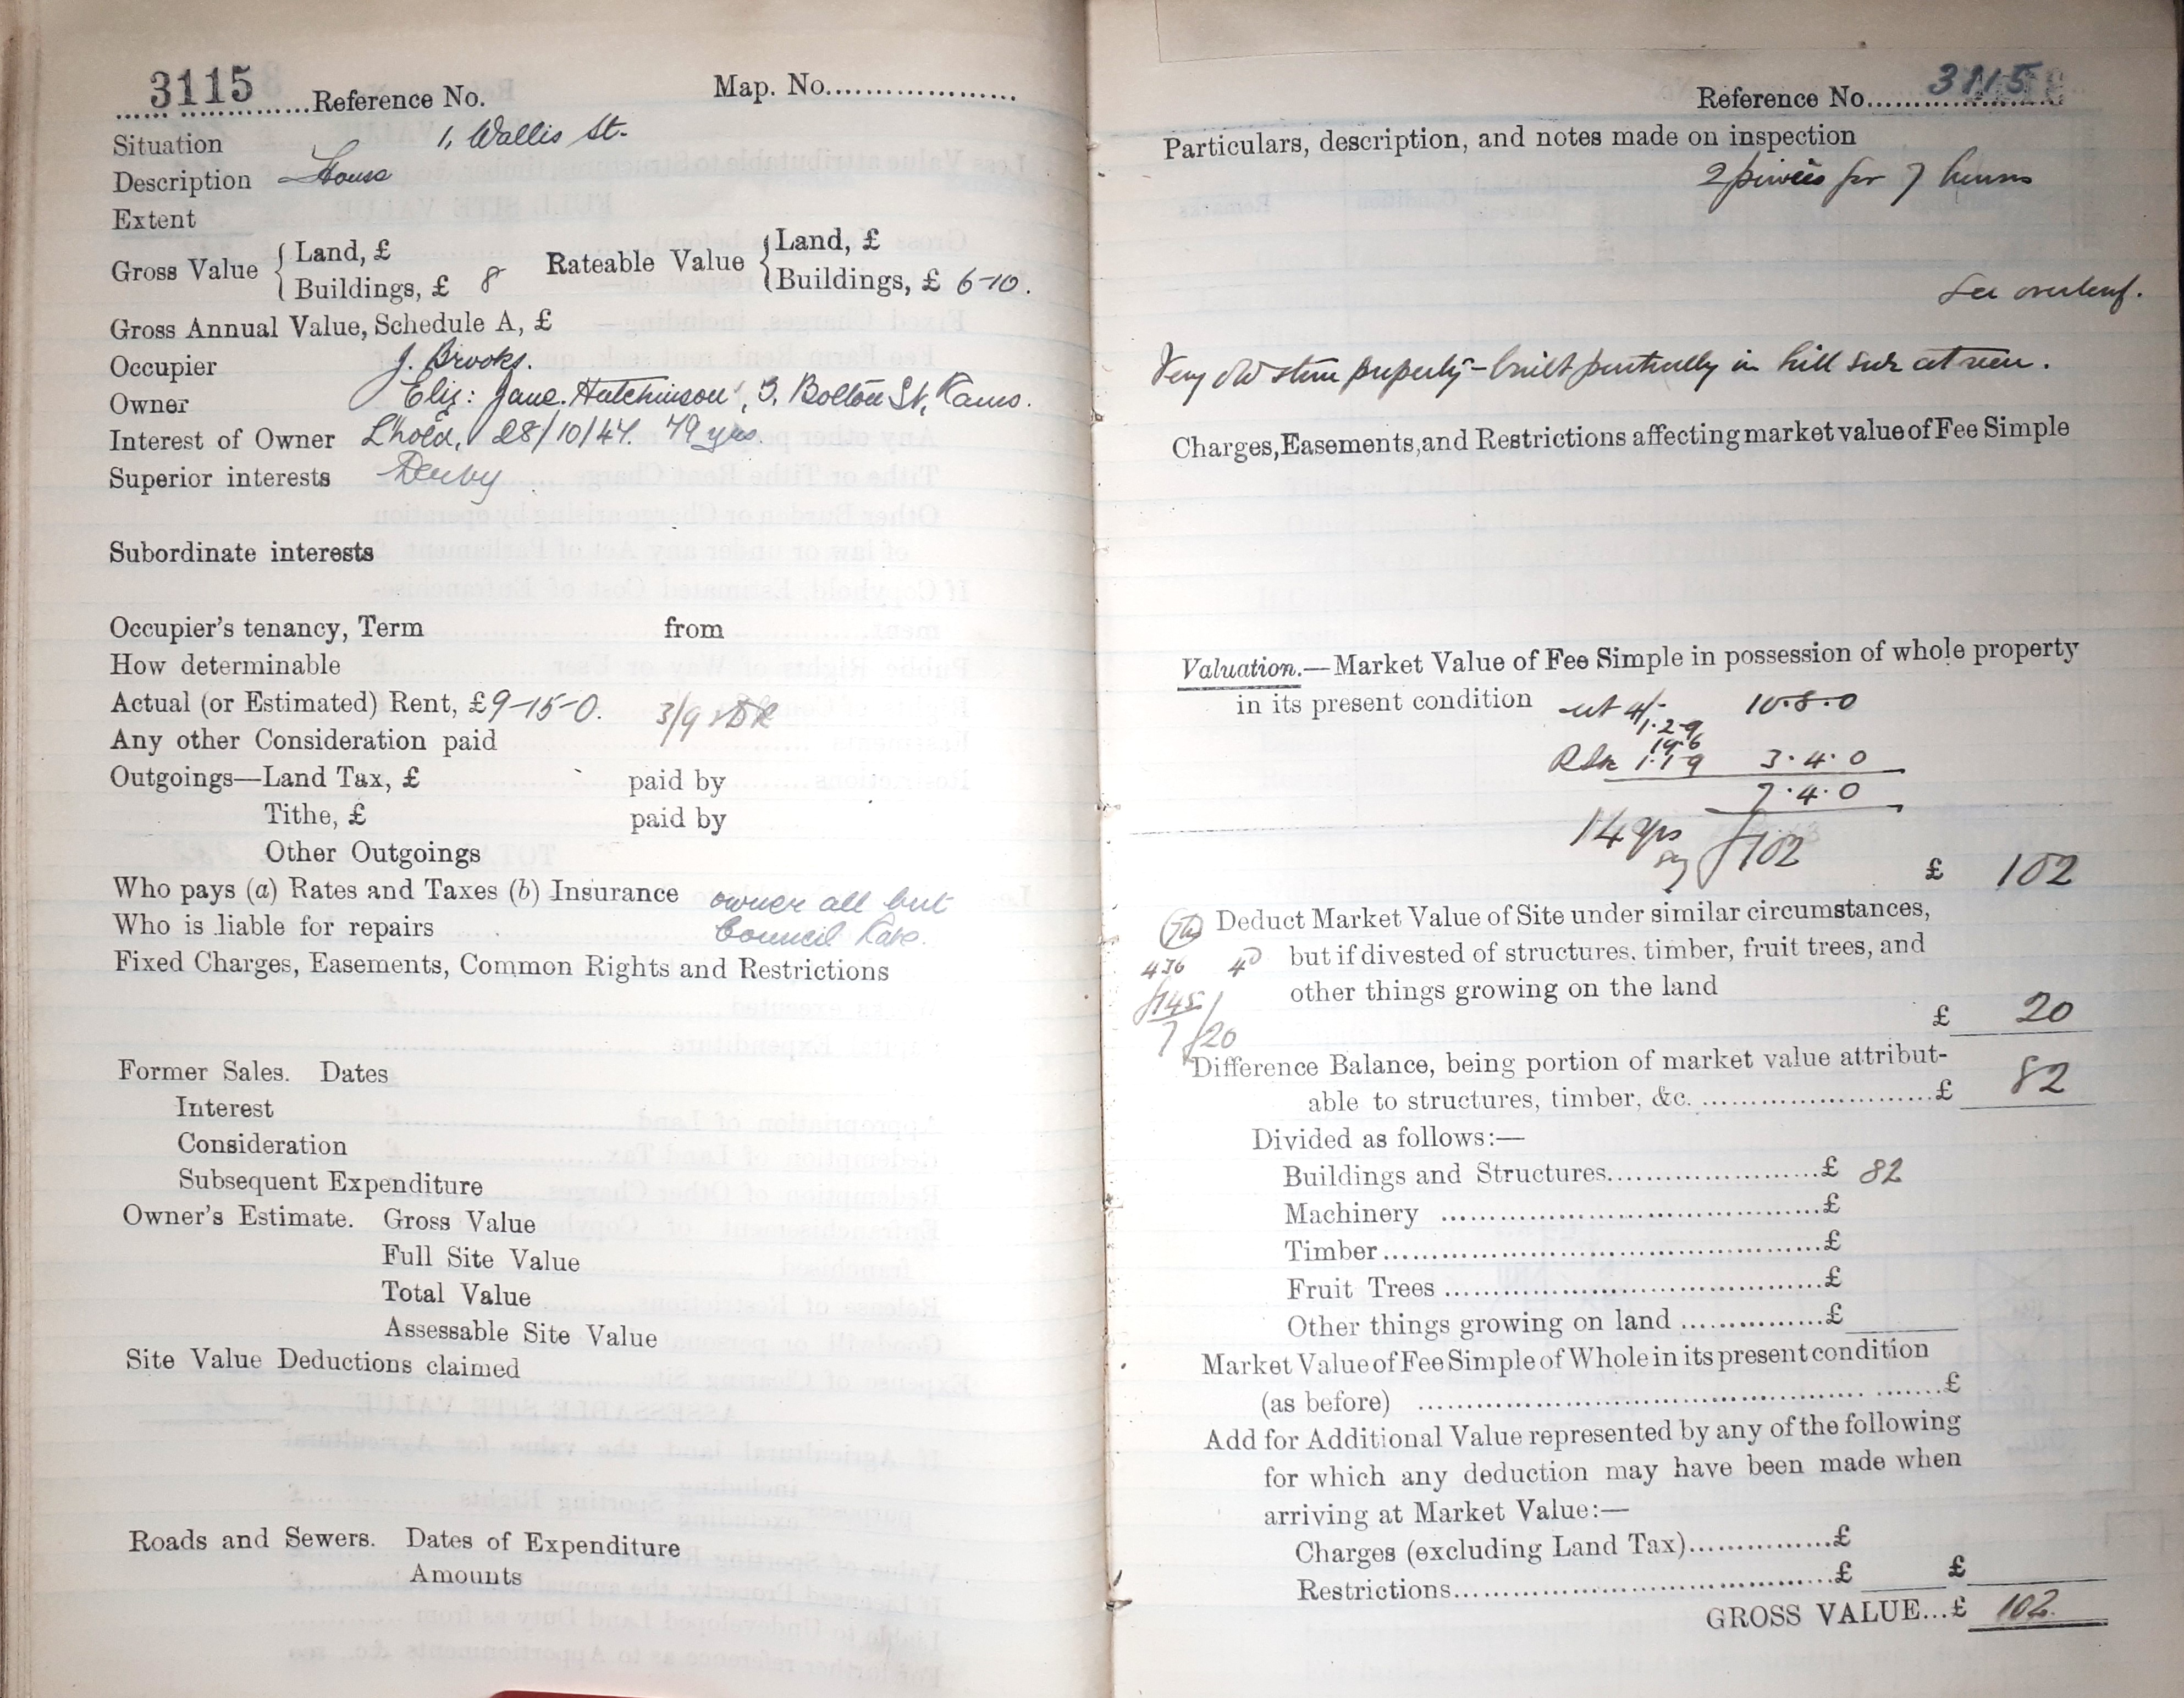 3115 Reference No. Map. No....................
Situation 1, Wallis St.
Description House
Extent
Gross Value { Land, £ Rateable Value { Land, £
Buildings, £ 8 Buildings, £ 6-10.
Gross Annual Value, Schedule A, £
Occupier J. Brooks.
Owner Eliz: Jane. Hutchinson, 3, Bolton St, Rams.
Interest of Owner L'hold, 28/10/47. 79 yrs.
Superior interests Derby
Subordinate interests
Occupier's tenancy, Term from
How determinable
Actual (or Estimated) Rent, £9-15-0. 3/9
Any other Consideration paid
Outgoings—Land Tax, £ paid by
Tithe, £ paid by
Other Outgoings
Who pays (a) Rates and Taxes (b) Insurance owner all but
Who is liable for repairs Council Rate.
Fixed Charges, Easements, Common Rights and Restrictions
Former Sales. Dates
Interest
Consideration
Subsequent Expenditure
Owner's Estimate. Gross Value
Full Site Value
Total Value
Assessable Site Value
Site Value Deductions claimed
Roads and Sewers. Dates of Expenditure
Amounts
Reference No. 3115
Particulars, description, and notes made on inspection
2 privies for 7 houses
See overleaf.
Very old stone property - built partially in hill side at rear.
Charges, Easements, and Restrictions affecting market value of Fee Simple
Valuation.—Market Value of Fee Simple in possession of whole property
in its present condition 4/- 10.8.0
1.2.9
19.6
1.1.9 3.4.0
7.4.0
14 yrs
say £102
£ 102
Deduct Market Value of Site under similar circumstances,
436 4D but if divested of structures, timber, fruit trees, and
£145 other things growing on the land
7 £20 £ 20
Difference Balance, being portion of market value attribut-
able to structures, timber, &c. ..............................£ 82
Divided as follows:—
Buildings and Structures.......................£ 82
Machinery ........................................£
Timber..............................................£
Fruit Trees .......................................£
Other things growing on land ...............£
Market Value of Fee Simple of Whole in its present condition
(as before) ......................................................£
Add for Additional Value represented by any of the following
for which any deduction may have been made when
arriving at Market Value:—
Charges (excluding Land Tax)...............£
Restrictions.......................................£ £
GROSS VALUE...£ 102